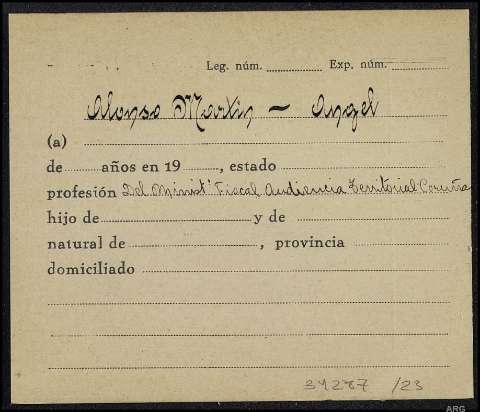 Leg. núm. Exp. núm.
Alonso Martin — Angel
(a)
de años en 19 , estado
profesión Del Minist° Fiscal Audiencia Territorial Coruña
hijo de y de
natural de , provincia
domiciliado
31287 /23
ARG